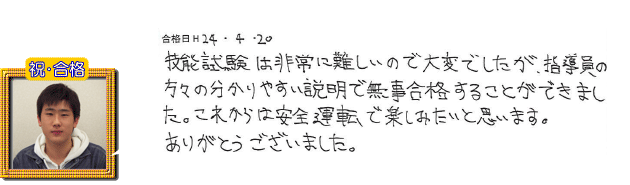 祝・合格
合格日 H 24・4・20
技能試験は非常に難しいので大変でしたが、指導員の
方々の分かりやすい説明で無事合格することができまし
た。これからは安全運転で楽しみたいと思います。
ありがとうございました。